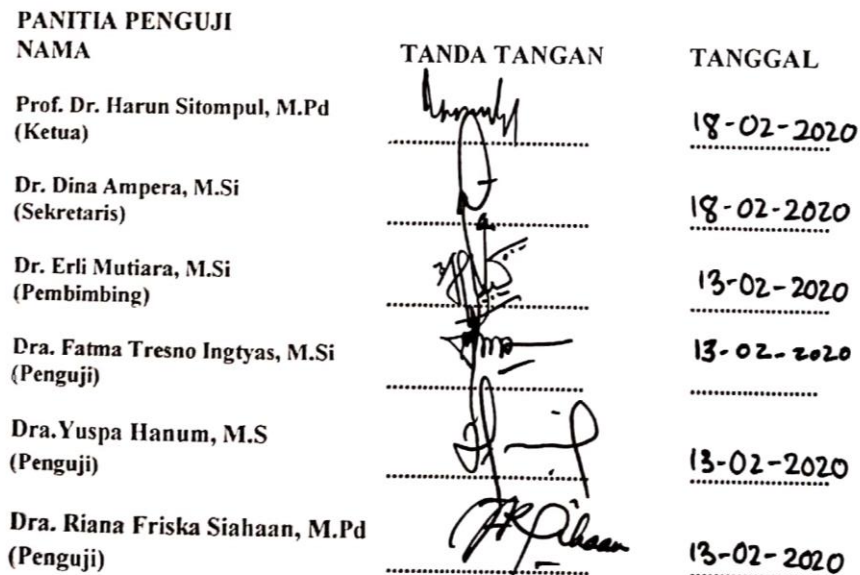 PANITIA PENGUJI
NAMA TANDA TANGAN TANGGAL
Prof. Dr. Harun Sitompul, M.Pd
(Ketua) 18-02-2020
Dr. Dina Ampera, M.Si
(Sekretaris) 18-02-2020
Dr. Erli Mutiara, M.Si
(Pembimbing) 13-02-2020
Dra. Fatma Tresno Ingtyas, M.Si 13-02-2020
(Penguji)
Dra.Yuspa Hanum, M.S
(Penguji) 13-02-2020
Dra. Riana Friska Siahaan, M.Pd
(Penguji) 13-02-2020